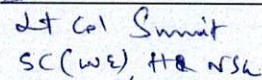 Lt Col Sumit
SC (WE), HQ NSG